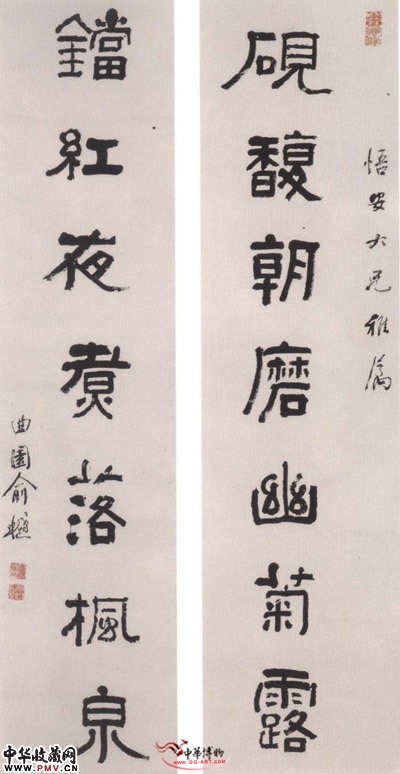 悟安大兄雅屬
硯馥朝磨幽菊露
鐺紅夜煮落楓泉
曲園俞樾
中华收藏网
WWW.PMV.CN
中華博物
www.GG-ART.com